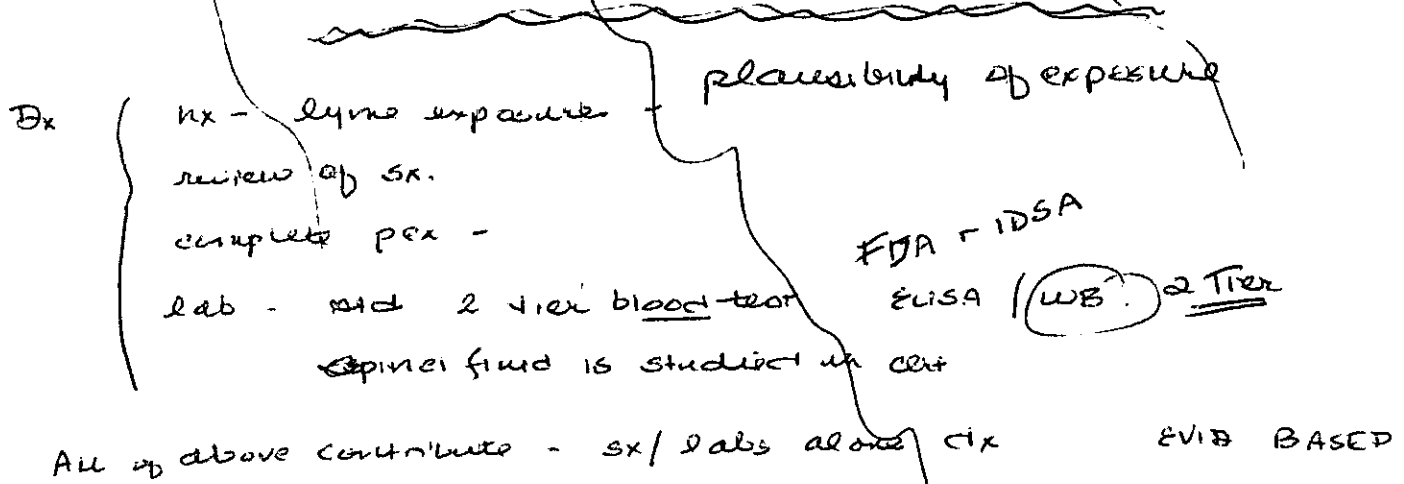 plausibility of exposure
Dx hx - lyme exposure -
review of sx.
complete pex -
FDA - IDSA
lab - std 2 tier blood test ELISA / WB 2 Tier
spinal fluid is studied in cert
All of above contribute - sx / labs alone dx EVID BASED